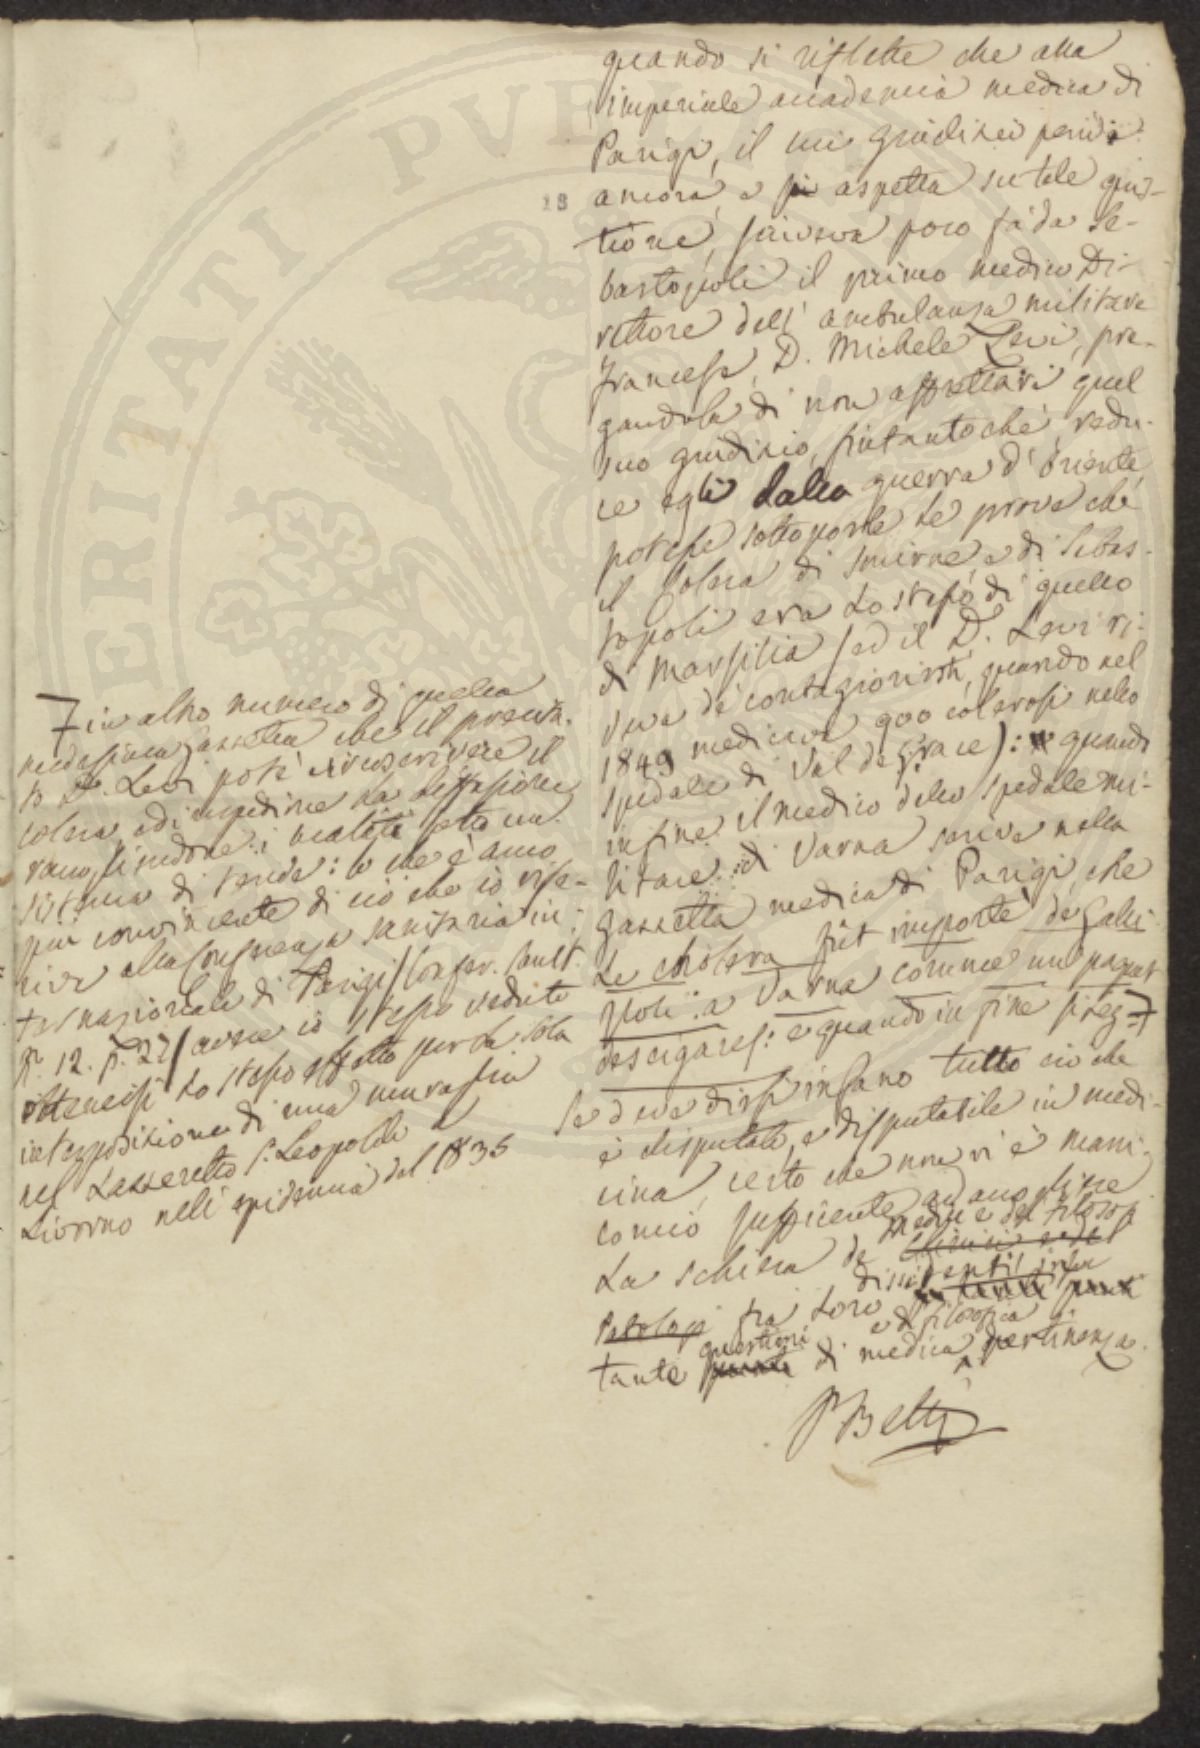 quando si riflette che alla
imperiale accademia medica di
Parigi, il cui giudizio pende
ancora, e si aspetta su tale quis-
tione, scriveva poco fà da Se-
bastopoli il primo medico Di-
rettore dell' ambulanza militare
francese, D. Michele Levi, pre-
gandola di non affrettare quel
suo giudizio, fintantoché, redu-
ce egli dalla guerra d' Oriente,
potesse sottoporle le prove che
il Colera di Smirne, e di Sebas-
topoli era lo stesso di quello
di Marsilia (ed il D. Levi ri-
de de' contagionisti, quando nel
1849 medicava 900 colerosi nello
spedale di Val de Grace): quando
infine il medico dello spedale mi-
litare di Varna scrive nella
gazzetta medica di Parigi, che
le cholera fut importé de Galli
poli: a Varna comme un paquet
de cigares: e quando in fine si legge
se deve dirsi insano tutto ciò che
è disputato, e disputabile in medi-
cina, certo che non vi è mani-
comio sufficiente ad accogliere
la schiera de medici e dei filosofi
Patologi fra loro dissidenti in
tante questioni di medica e di filosofica pertinenza.
PBetti
28
in altro numero di quella
medesima gazzetta che il preci-
to D. Levi poté circoscrivere il
colera, ed impedirne la diffusione
isolandone i malati sotto un
sistema di tende: lo che è anco
più convincente di ciò che io rife-
rivo alla Conferenza sanitaria in-
ternazionale di Parigi (Confer. Sanit.
n. 12. p. 27) avere io stesso veduto
ottenersi lo stesso effetto per la sola
interposizione di una muraglia
nel Lazzeretto S. Leopoldo a
Livorno nell' epidemia del 1835